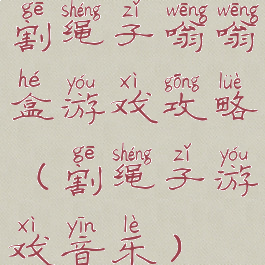 gē shéng zǐ wēng wēng
割绳子嗡嗡
hé yóu xì gōng lüè
盒游戏攻略
gē shéng zǐ yóu
（割绳子游
xì yīn lè
戏音乐）